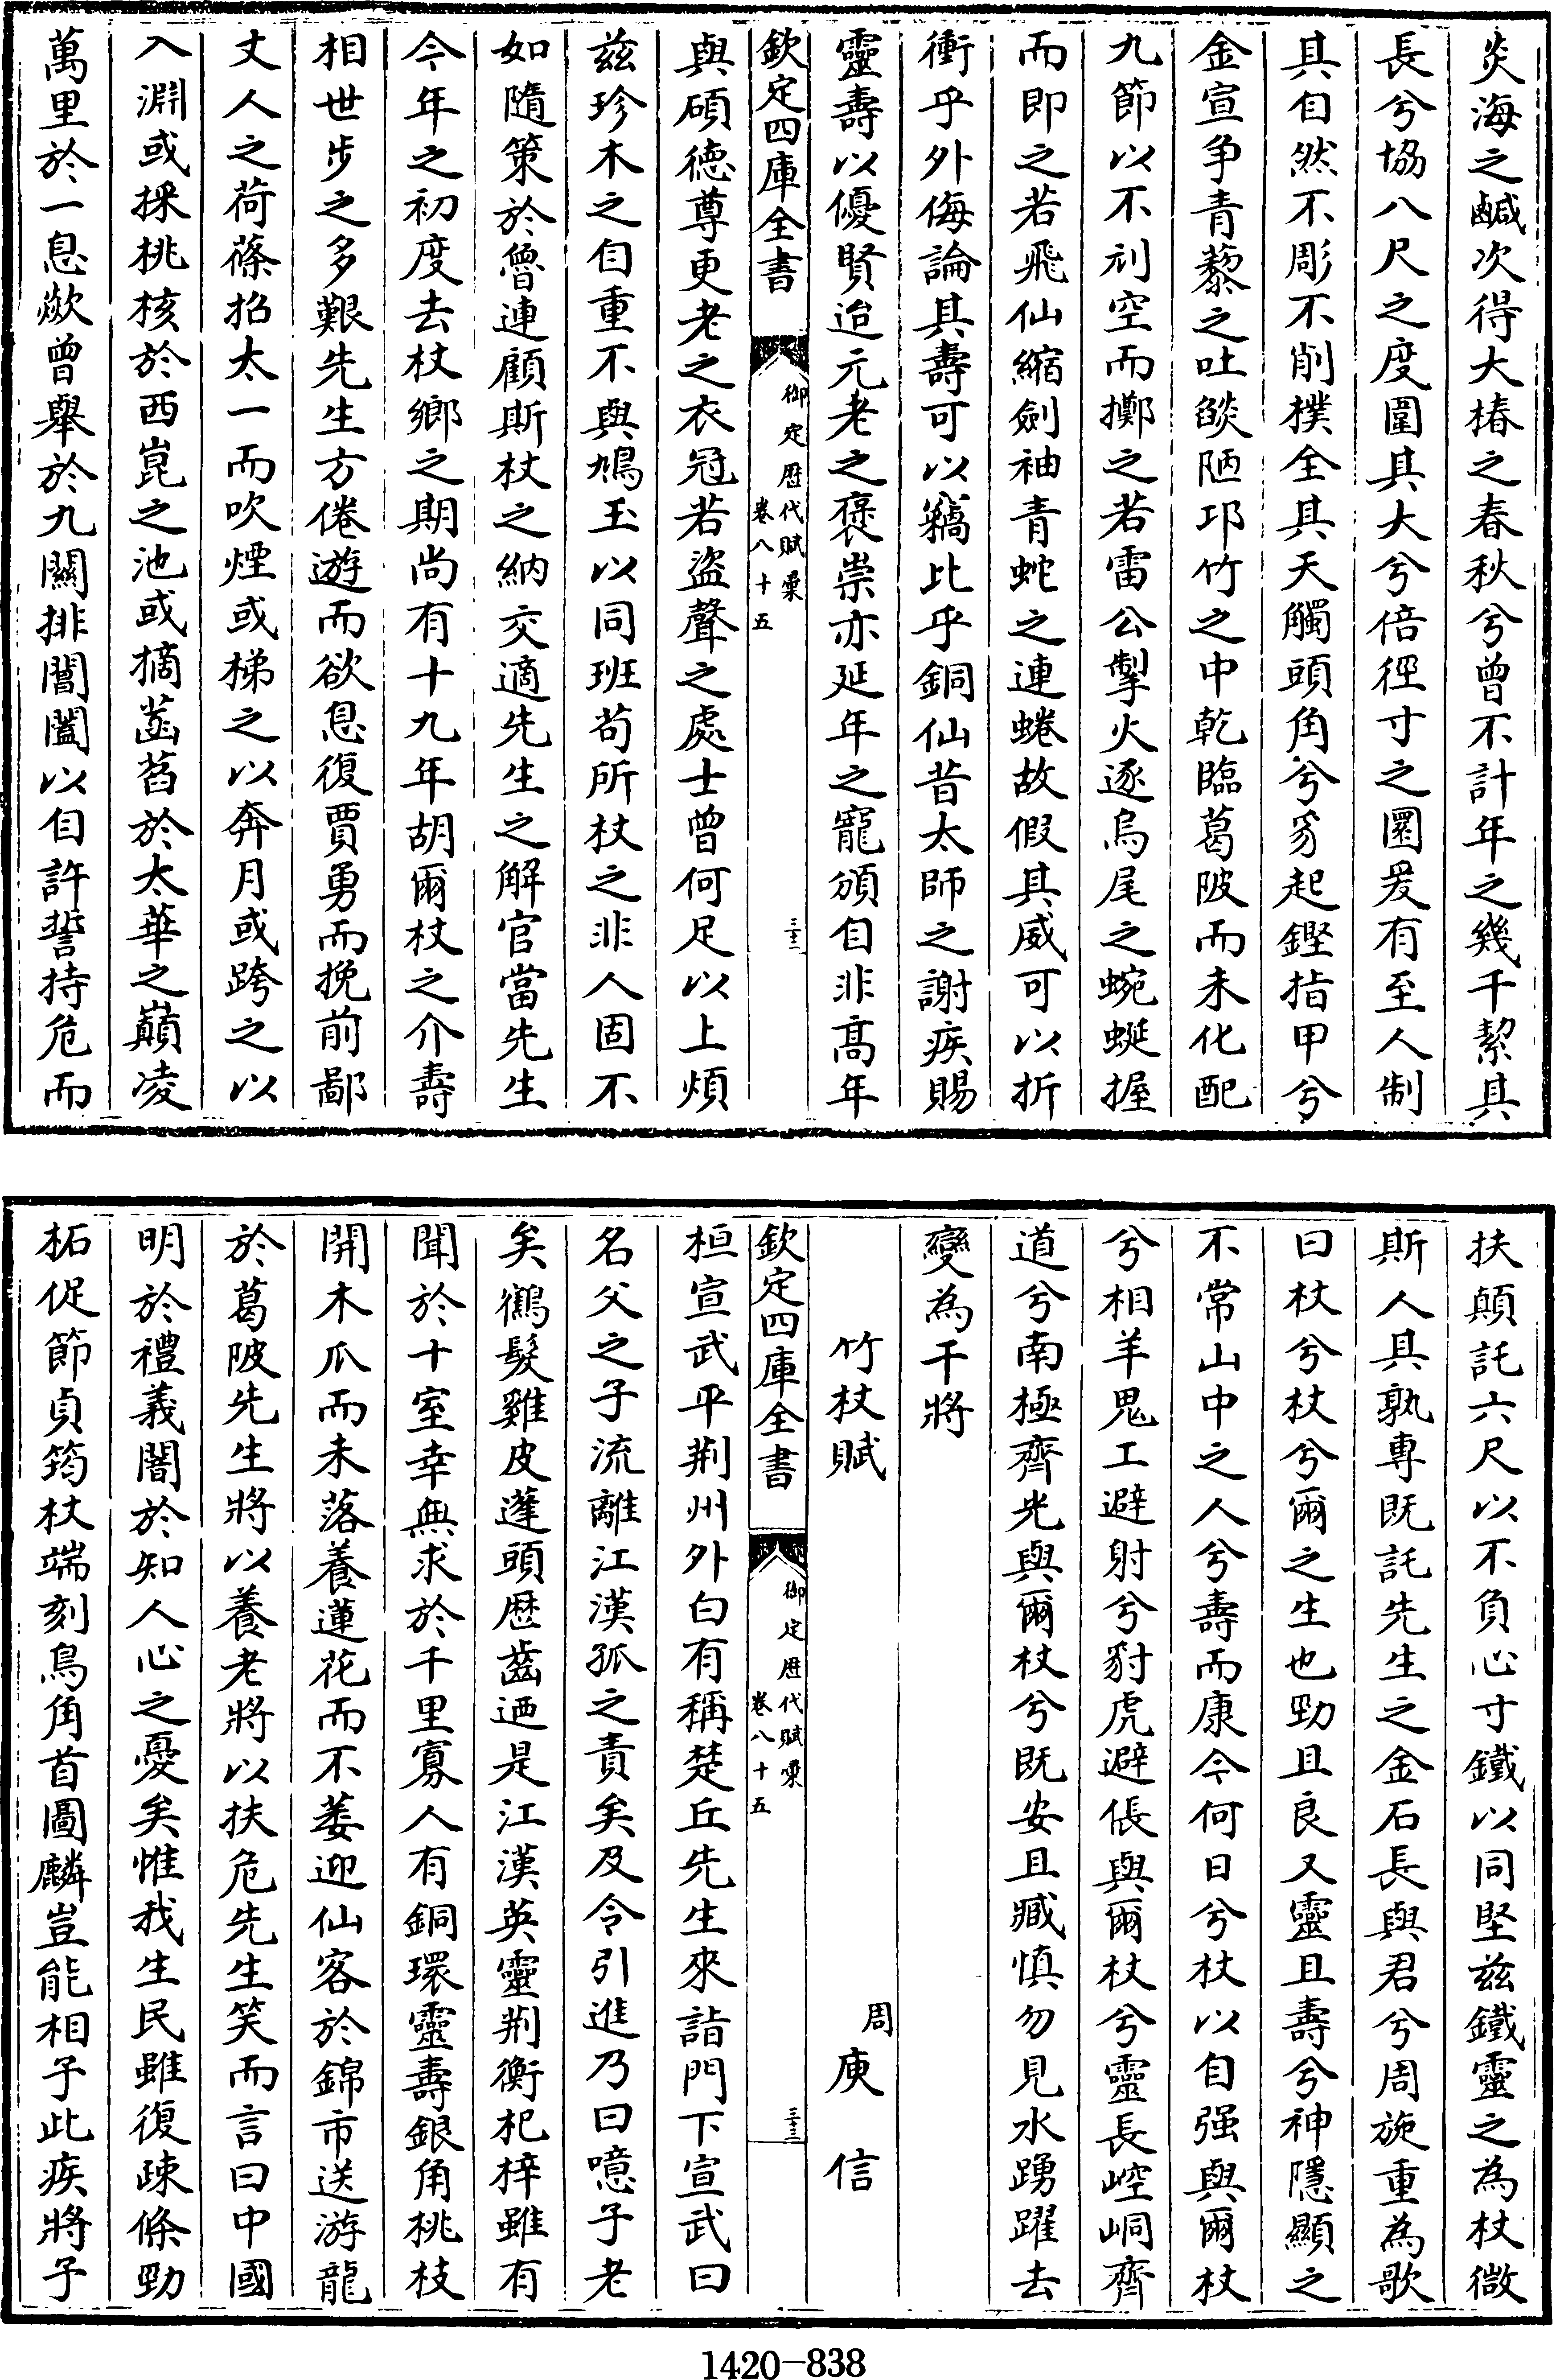 炎海之鹹次得大椿之春秋兮曾不計年之幾千絜其
長兮協八尺之度圍其大兮倍徑寸之圜爰有至人制
其自然不彫不削樸全其天觸頭角兮豸起鏗指甲兮
金宣争青藜之吐燄陋卭竹之中乾臨葛陂而未化配
九節以不刓空而擲之若雷公掣火逐烏尾之蜿蜒握
而即之若飛仙縮劍袖青蛇之連蜷故假其威可以折
衝乎外侮論其壽可以竊比乎銅仙昔太師之謝疾賜
靈壽以優賢迨元老之褒崇亦延年之寵頒自非髙年
欽定四庫全書
御定歴代賦彚
卷八十五
三十二
與碩德尊更老之衣冠若盜聲之處士曾何足以上煩
兹珍木之自重不與鳩玉以同班苟所杖之非人固不
如隨策於魯連顧斯杖之納交適先生之解官當先生
今年之初度去杖鄉之期尚有十九年胡爾杖之介壽
相世步之多艱先生方倦遊而欲息復賈勇而挽前鄙
丈人之荷蓧招太一而吹煙或梯之以奔月或跨之以
入淵或採桃核於西崑之池或摘菡萏於太華之巔凌
萬里於一息歘曾舉於九關排閶闔以自許誓持危而
扶顛託六尺以不負心寸鐵以同堅兹鐵靈之為杖微
斯人其孰專既託先生之金石長與君兮周施重為歌
曰杖兮杖兮爾之生也勁且良又靈且壽兮神隱顯之
不常山中之人兮壽而康今何日兮杖以自强與爾杖
兮相羊鬼工避射兮豺虎避倀與爾杖兮靈長崆峒齊
道兮南極齊光與爾杖兮既安且臧慎勿見水踴躍去
變為干將
竹杖賦
周庾信
欽定四庫全書
御定歴代賦彚
卷八十五
三十三
桓宣武平荆州外白有稱楚丘先生來詣門下宣武曰
名父之子流離江漢孤之責矣及令引進乃曰噫子老
矣鶴髮雞皮蓬頭歴齒迺是江漢英靈荆衡杞梓雖有
聞於十室幸無求於千里寡人有銅環靈壽銀角桃枝
開木瓜而未落養蓮花而不萎迎仙客於錦市送游龍
於葛陂先生將以養老將以扶危先生笑而言曰中國
明於禮義闇於知人心之憂矣惟我生民雖復疎條勁
柘促節貞筠杖端刻鳥角首圖麟豈能相予此疾將予
1420-838